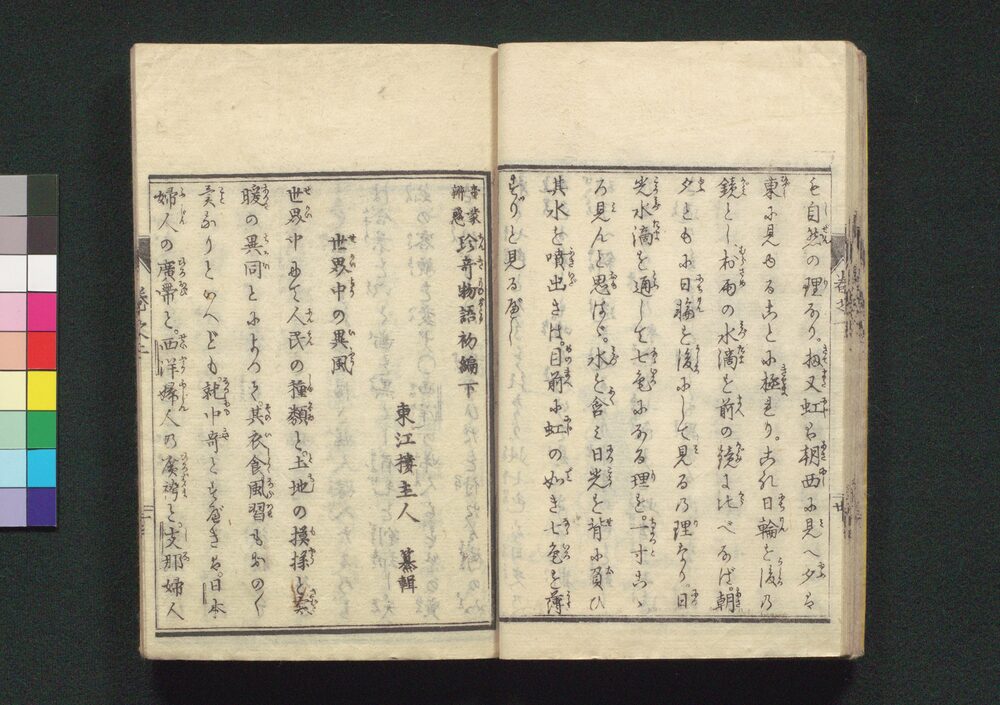 も自然の理なり。扨又虹は朝西に見へ夕は
東に見ゆることに極れり。これ日輪を後の
鏡とし、村雨の水滴を前の鏡に比べなば。朝
夕ともに日輪を後にして見るの理なり。日
光水滴を通して七色になる理を。一寸こゝ
ろ見んと思はゞ。水を含み日光を背に負ひ
其水を噴出さは。目前に虹の如き七色を薄
すりと見るべし
童蒙
辨惑
珍奇物語初編下
東江樓主人 纂輯
世界中の異風
世界中にて人民の種類と。土地の模様と寒
暖の異同とによつて其衣食風習もおの〱
異なりといへども就中奇とすべきは。日本
婦人の廣帯と。西洋婦人の廣袴と支那婦人